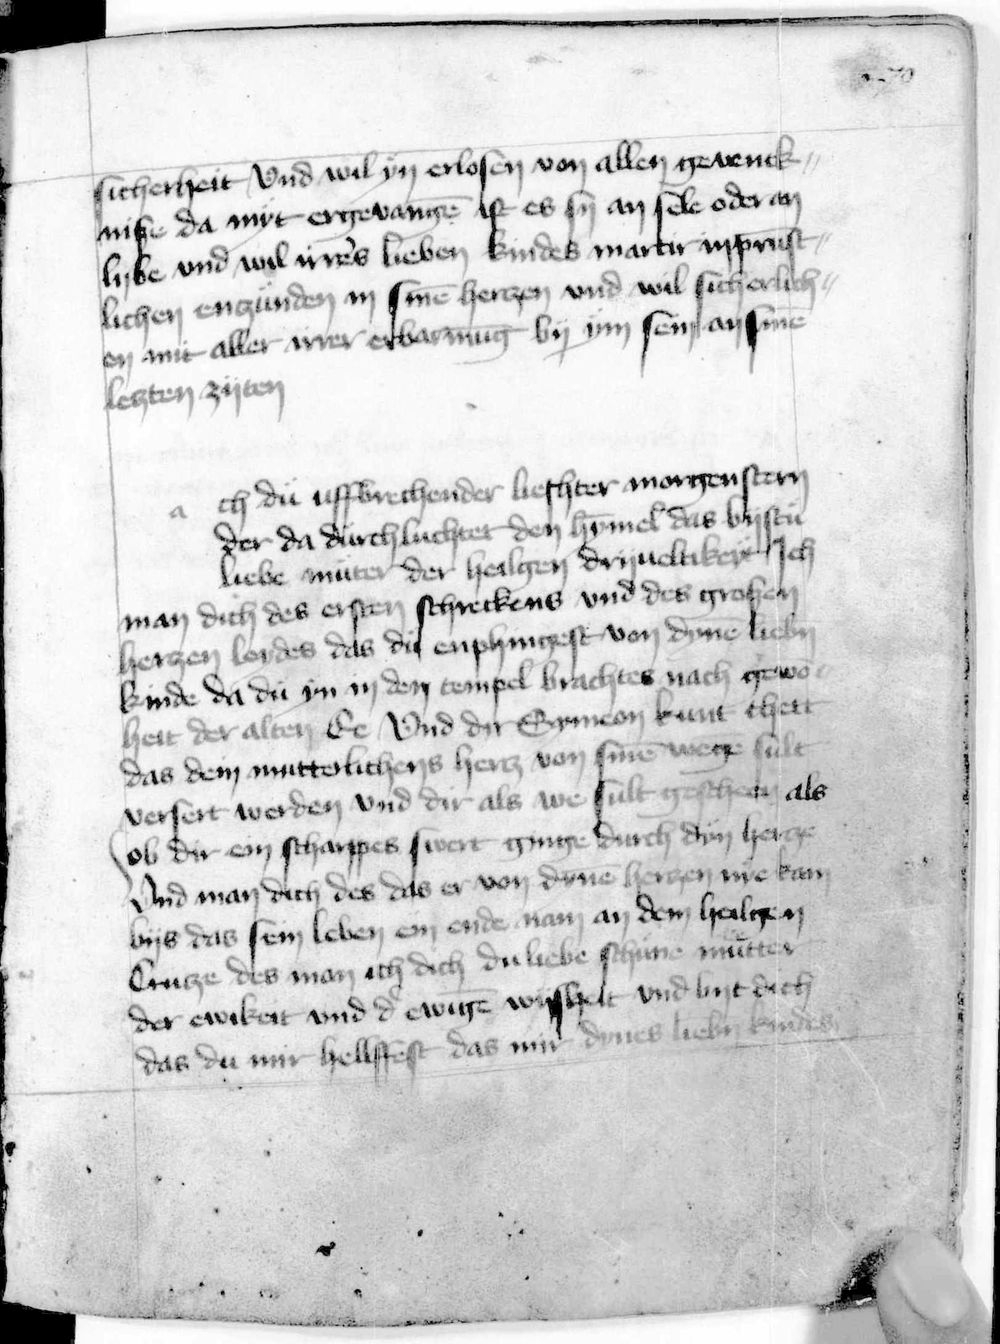 70
sicherheit Vnd wil yn erlosen von allen gevenck〃
niße da myt er gevang̅e ist es sy̅ an sele oder an
lybe vnd wil irre͛s lieben kindes martir inprunst〃
lichen enzünden in sine̅ hertzen vnd wil sicherlich〃
en mit aller irrer erbarmu̅g by ym sein an sine̅
letzten zijten
a ch dü uffbrechender liechter morgenstern
der da dürchluchtet den hy̅mel das bystü
liebe müter der heilgen dryueltikeyt Ich
man dich des ersten schreckens vnd des großen
hertzen leydes das du enphingest von dyne̅ liebn̅
kinde da dü yn in den tempel brachtes nach gewo
heit der alten Ee Vnd dir Symeon kunt thett
das dein mutterlichens hertz von sine̅ wege̅ sült
versert werden vnd dir als we sult gescheen als
ob dir ein scharppes swert ginge durch dyn hertze
Vnd man dich des das er von dyne̅ hertzen nye kam
bijs das sein leben ein ende nam an dem heilgen
Crutze des man ich dich du liebe schöne mütter
der ewikeit vnd d͛ ewige̅ wyßheit vnd biit dich
das du mir hellffest das mir dynes liebn̅ kindes